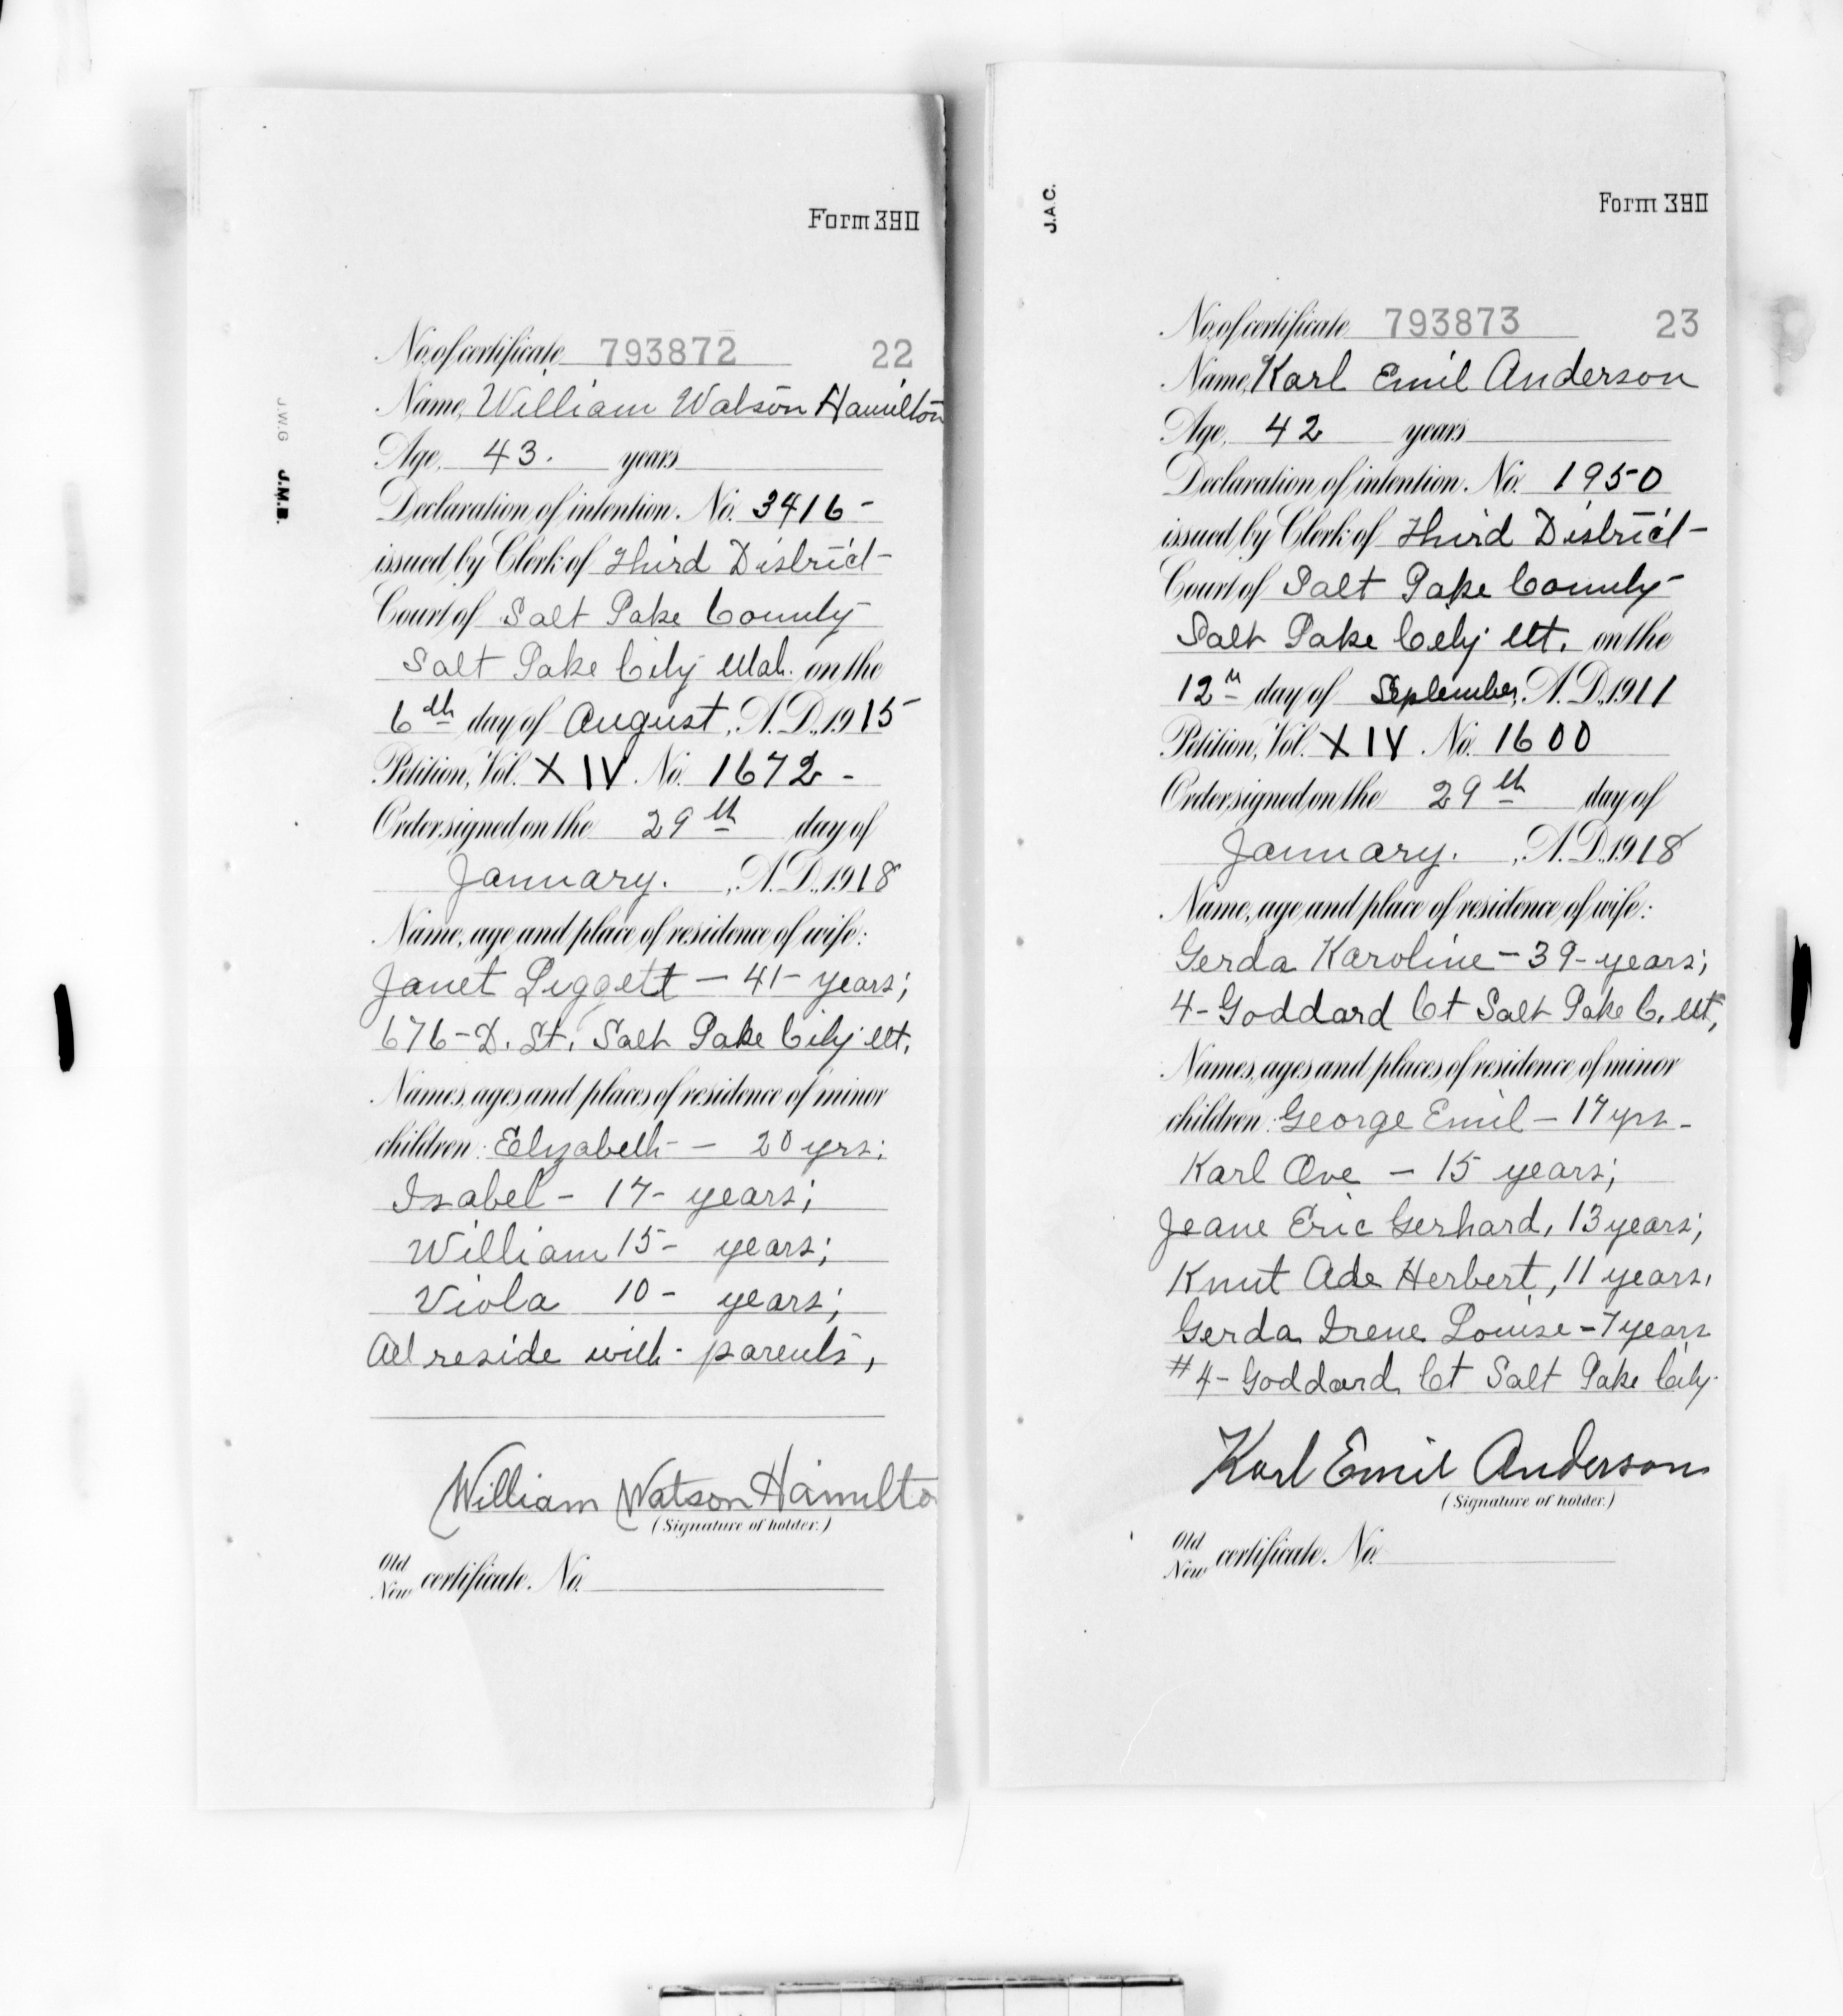 Form 390
No. of certificate 793872 22
Name, William Watson Hamilton
Age, 43. years
Declaration of intention. No. 3416-
issued by Clerk of Third District
Court of Salt Lake County
Salt Lake City Utah. on the
6th day of August, A.D., 1915
Petition, Vol. XIV No. 1672-
Order signed on the 29th day of
January. , A.D., 1918
Name, age and place of residence of wife:
Janet Liggett - 41- years;
676-D. St, Salt Lake City Ut.
Names, ages and places of residence of minor
children: Elizabeth - 20 yrs;
Isabel - 17- years;
William 15- years;
Viola 10- years;
All reside with parents,
William Watson Hamilto
(Signature of holder.)
Old
New certificate. No.
J.W.G J.M.B.
Form 390
J.A.C.
No. of certificate 793873 23
Name, Karl Emil Anderson
Age, 42 years
Declaration of intention. No. 1950
issued by Clerk of Third District
Court of Salt Lake County
Salt Lake City Ut. on the
12th day of September, A.D., 1911
Petition, Vol. XIV No. 1600
Order signed on the 29th day of
January. , A.D., 1918
Name, age and place of residence of wife:
Gerda Karoline - 39- years;
4- Goddard Ct Salt Lake C. Ut,
Names, ages and places of residence of minor
children: George Emil - 17 yrs-
Karl Ove - 15 years;
Jeane Eric Gerhard, 13 years;
Knut Ade Herbert, 11 years,
Gerda Irene Louise - 7 years
#4- Goddard Ct Salt Lake City-
Karl Emil Anderson
(Signature of holder.)
Old
New certificate. No.